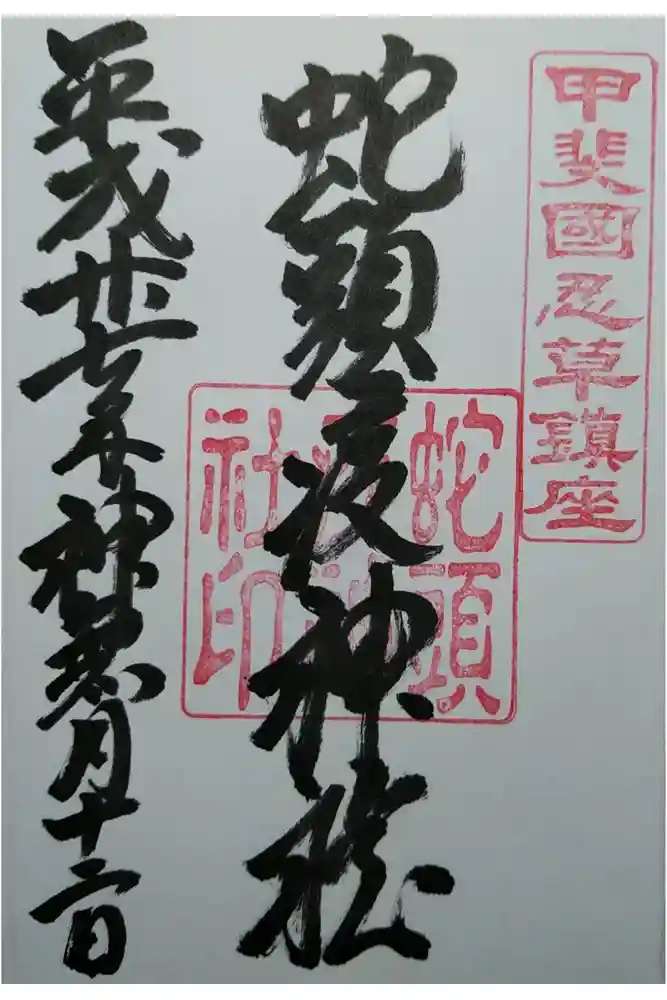 甲斐國忍草鎮座
蛇頭疫神社
蛇頭
社印
平成廿七年神無月十二日